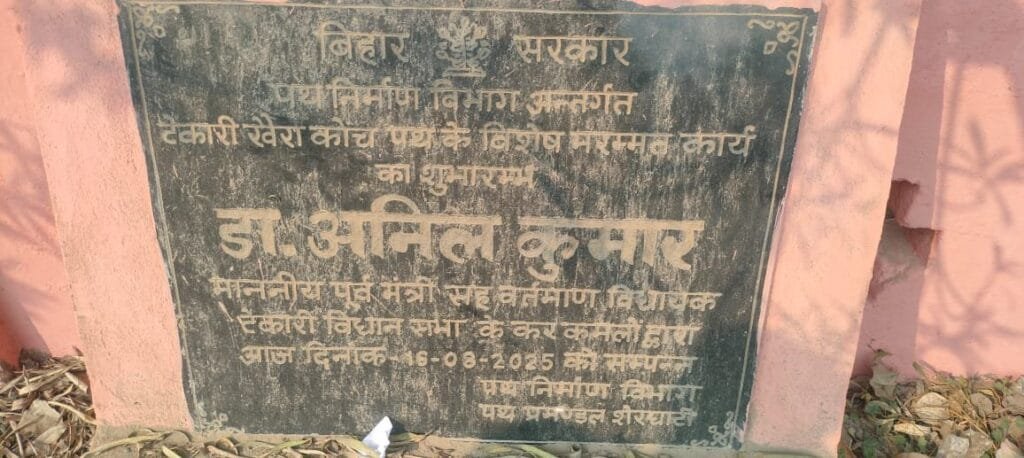 बिहार सरकार
पथ निर्माण विभाग अन्तर्गत
टेकारी खैरा कोंच पथ के विशेष मरम्मत कार्य
का शुभारम्भ
डा. अनिल कुमार
माननीय पूर्व मंत्री सह वर्तमाण विधायक
टेकारी विधान सभा के कर कमलों द्वारा
आज दिनांक-16-08-2025 को सम्पन्न
पथ निर्माण विभाग
पथ प्रमण्डल शेरघाटी